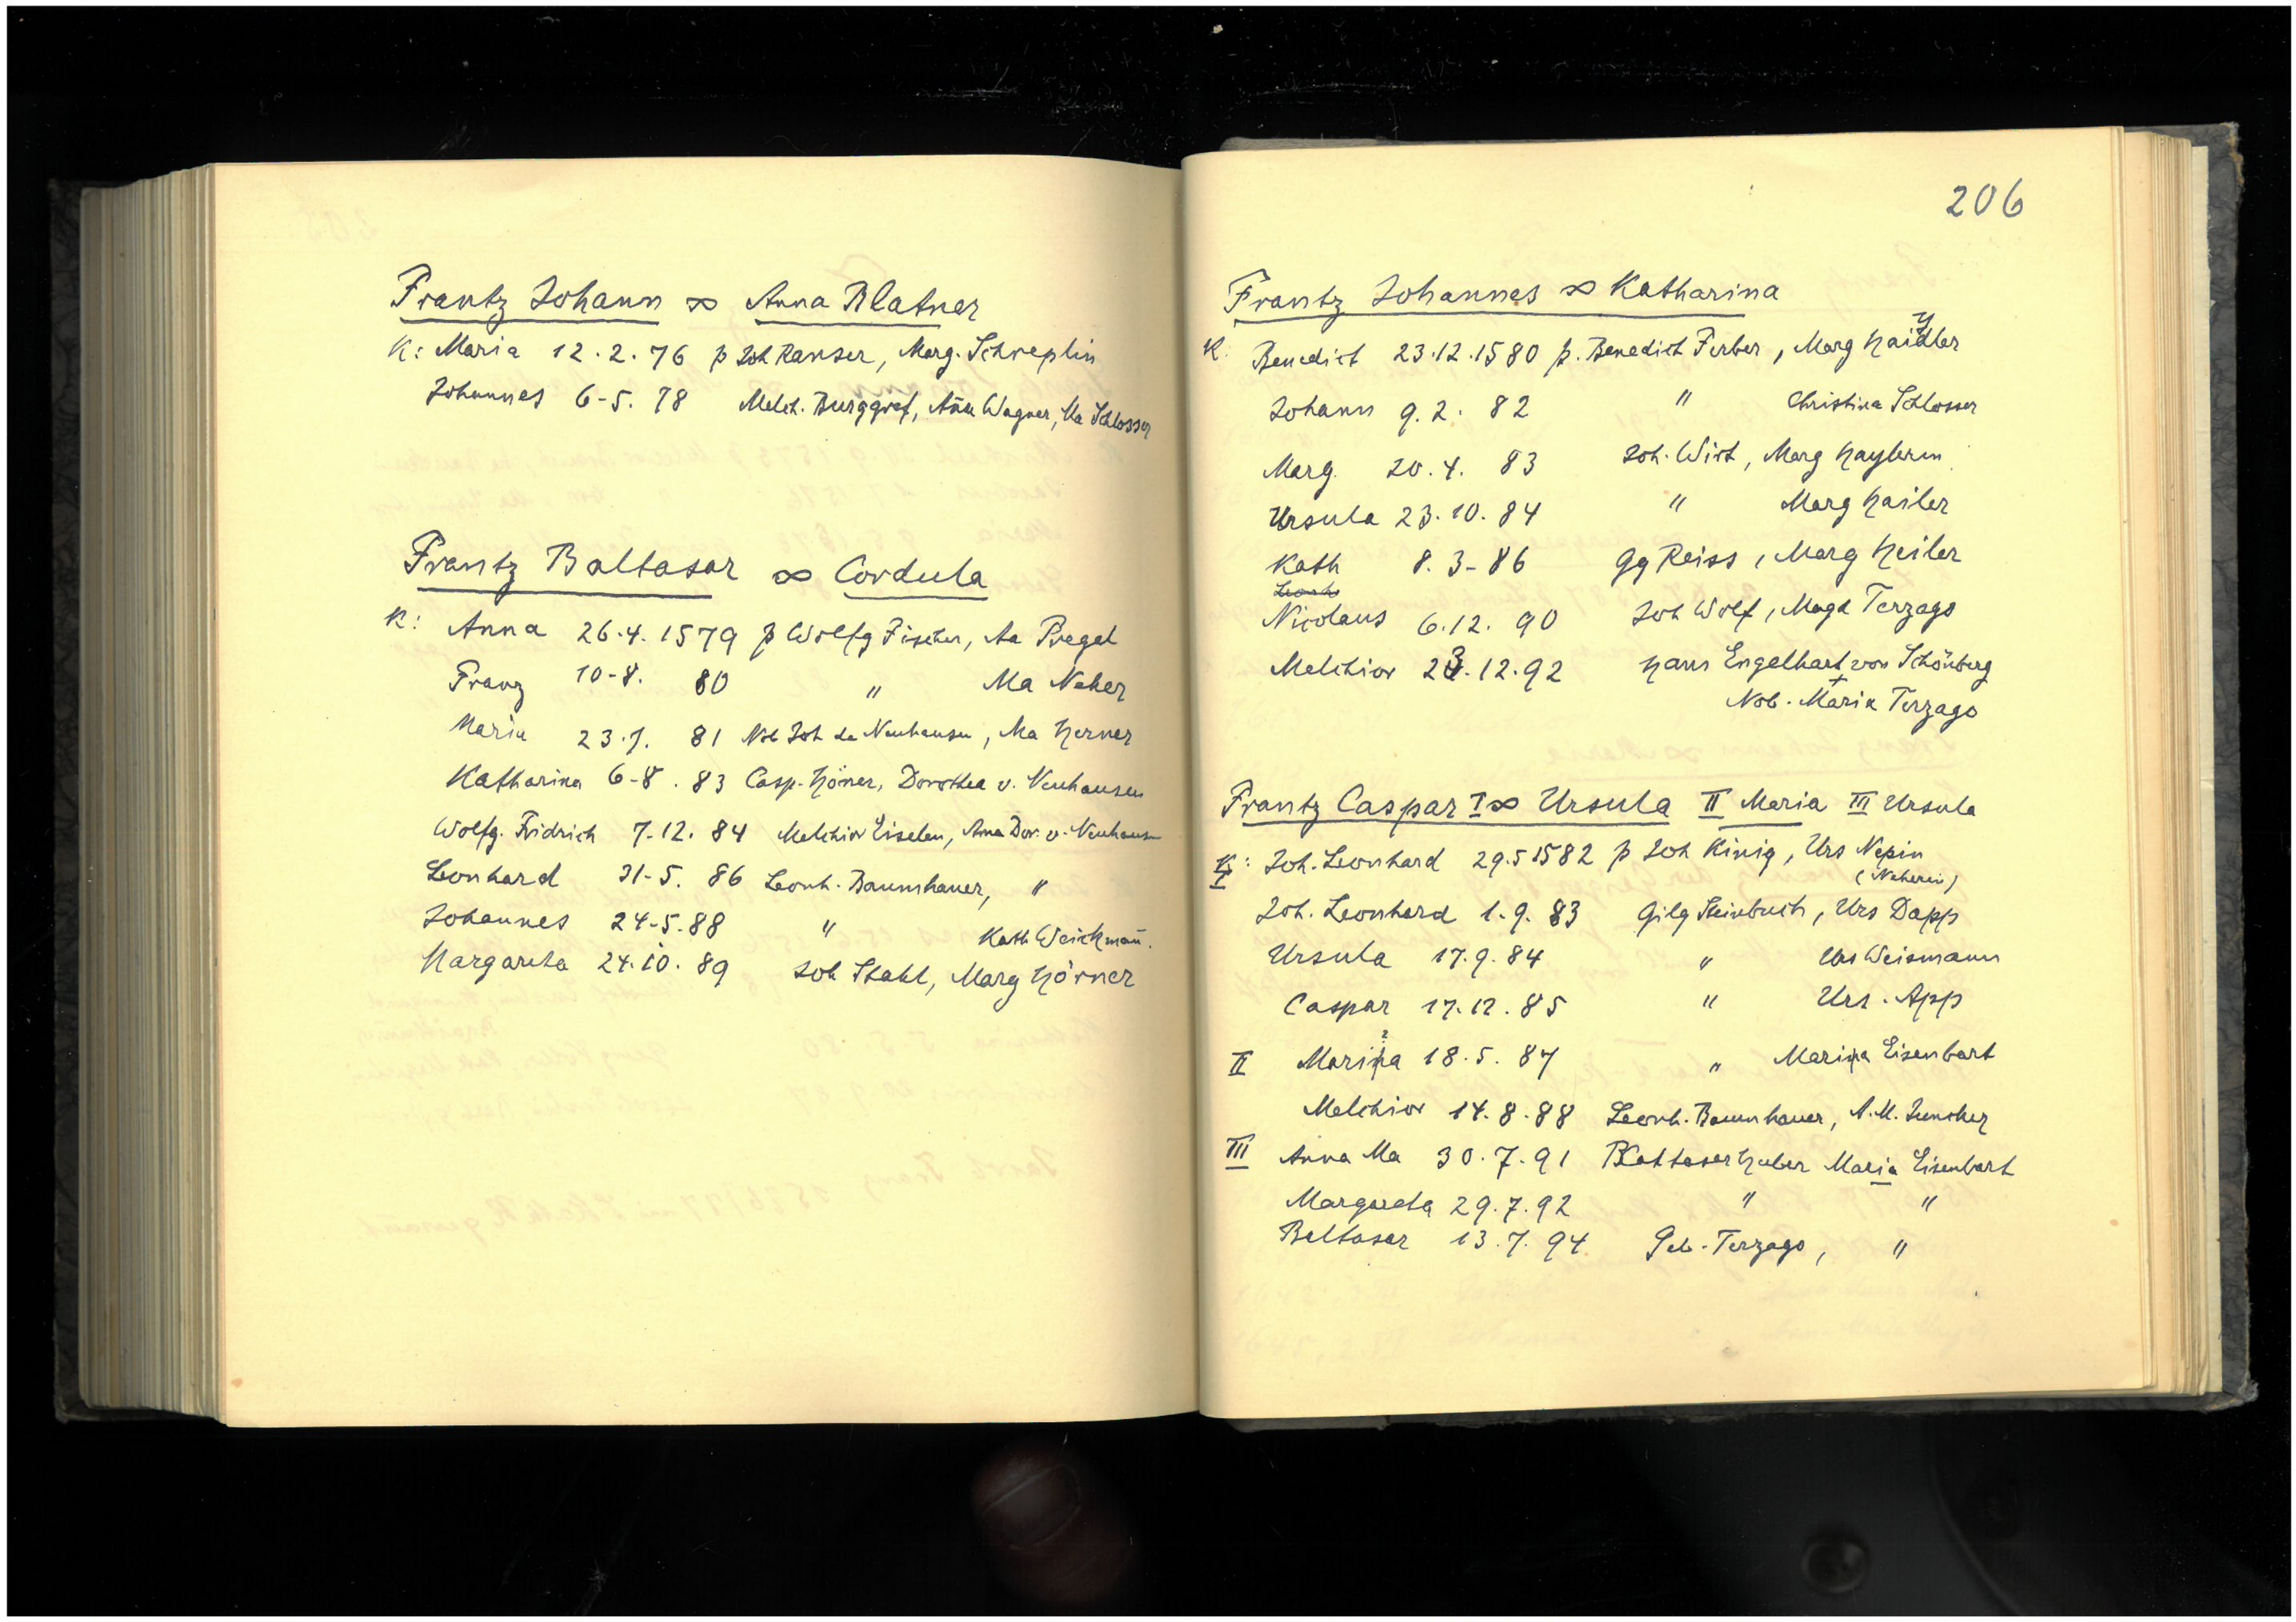 Frantz Johann ∞ Anna Blatner
K: Maria 12.2.76 p Joh Ranser, Marg. Schreplin
Johannes 6-5.78 Melch. Burggref, Anna Wagner, Ma Schlosser
Frantz Baltasar ∞ Cordula
K: Anna 26.4.1579 p Wolfg Fischer, Aa Pregel
Franz 10-8. 80 " Ma Neher
Maria 23.7. 81 Nob Joh de Neuhausen, Ma Herner
Katharina 6-8.83 Casp. Höner, Dorothea v. Neuhausen
Wolfg. Fridrich 7-12.84 Melchior Eiselen, Anna Dor. v. Neuhausen
Leonhard 31-5.86 Leonh. Baumhauer, "
Johannes 24-5.88 " Kath Weickman̄.
Margareta 24.10.89 Joh Stahl, Marg Hörner
206
Frantz Johannes ∞ Katharina
K. Benedict 23.12.1580 p. Benedict Ferber, Marg Haidler
Johann 9.2.82 " Christina Schlosser
Marg. 20.4.83 Joh. Wirt, Marg Haylerin
Ursula 23.10.84 " Marg Hailer
Kath 8.3-86 Gg Reiss, Marg Heiler
Nicolaus 6.12.90 Joh Wolf, Magd Terzago
Melchior 23.12.92 Hans Engelhart von Schönberg
+
Nob. Maria Terzago
Frantz Caspar I ∞ Ursula II Maria III Ursula
K: I Joh. Leonhard 29.5 1582 p Joh Kinig, Urs Nepin
(Neherin)
Joh. Leonhard 1.9.83 Gilg Steinbuch, Urs Dapp
Ursula 17.9.84 " Urs Weismann
Caspar 17.12.85 " Urs. App
II Maria 18.5.87 " Maria Eisenbart
Melchior 14.8.88 Leonh. Baumhauer, A.M. Juncker
III Anna Ma 30.7.91 Baltasar Huber Maria Eisenbart
Margareta 29.7.92 " "
Baltasar 13.7.94 Geb. Terzago, "